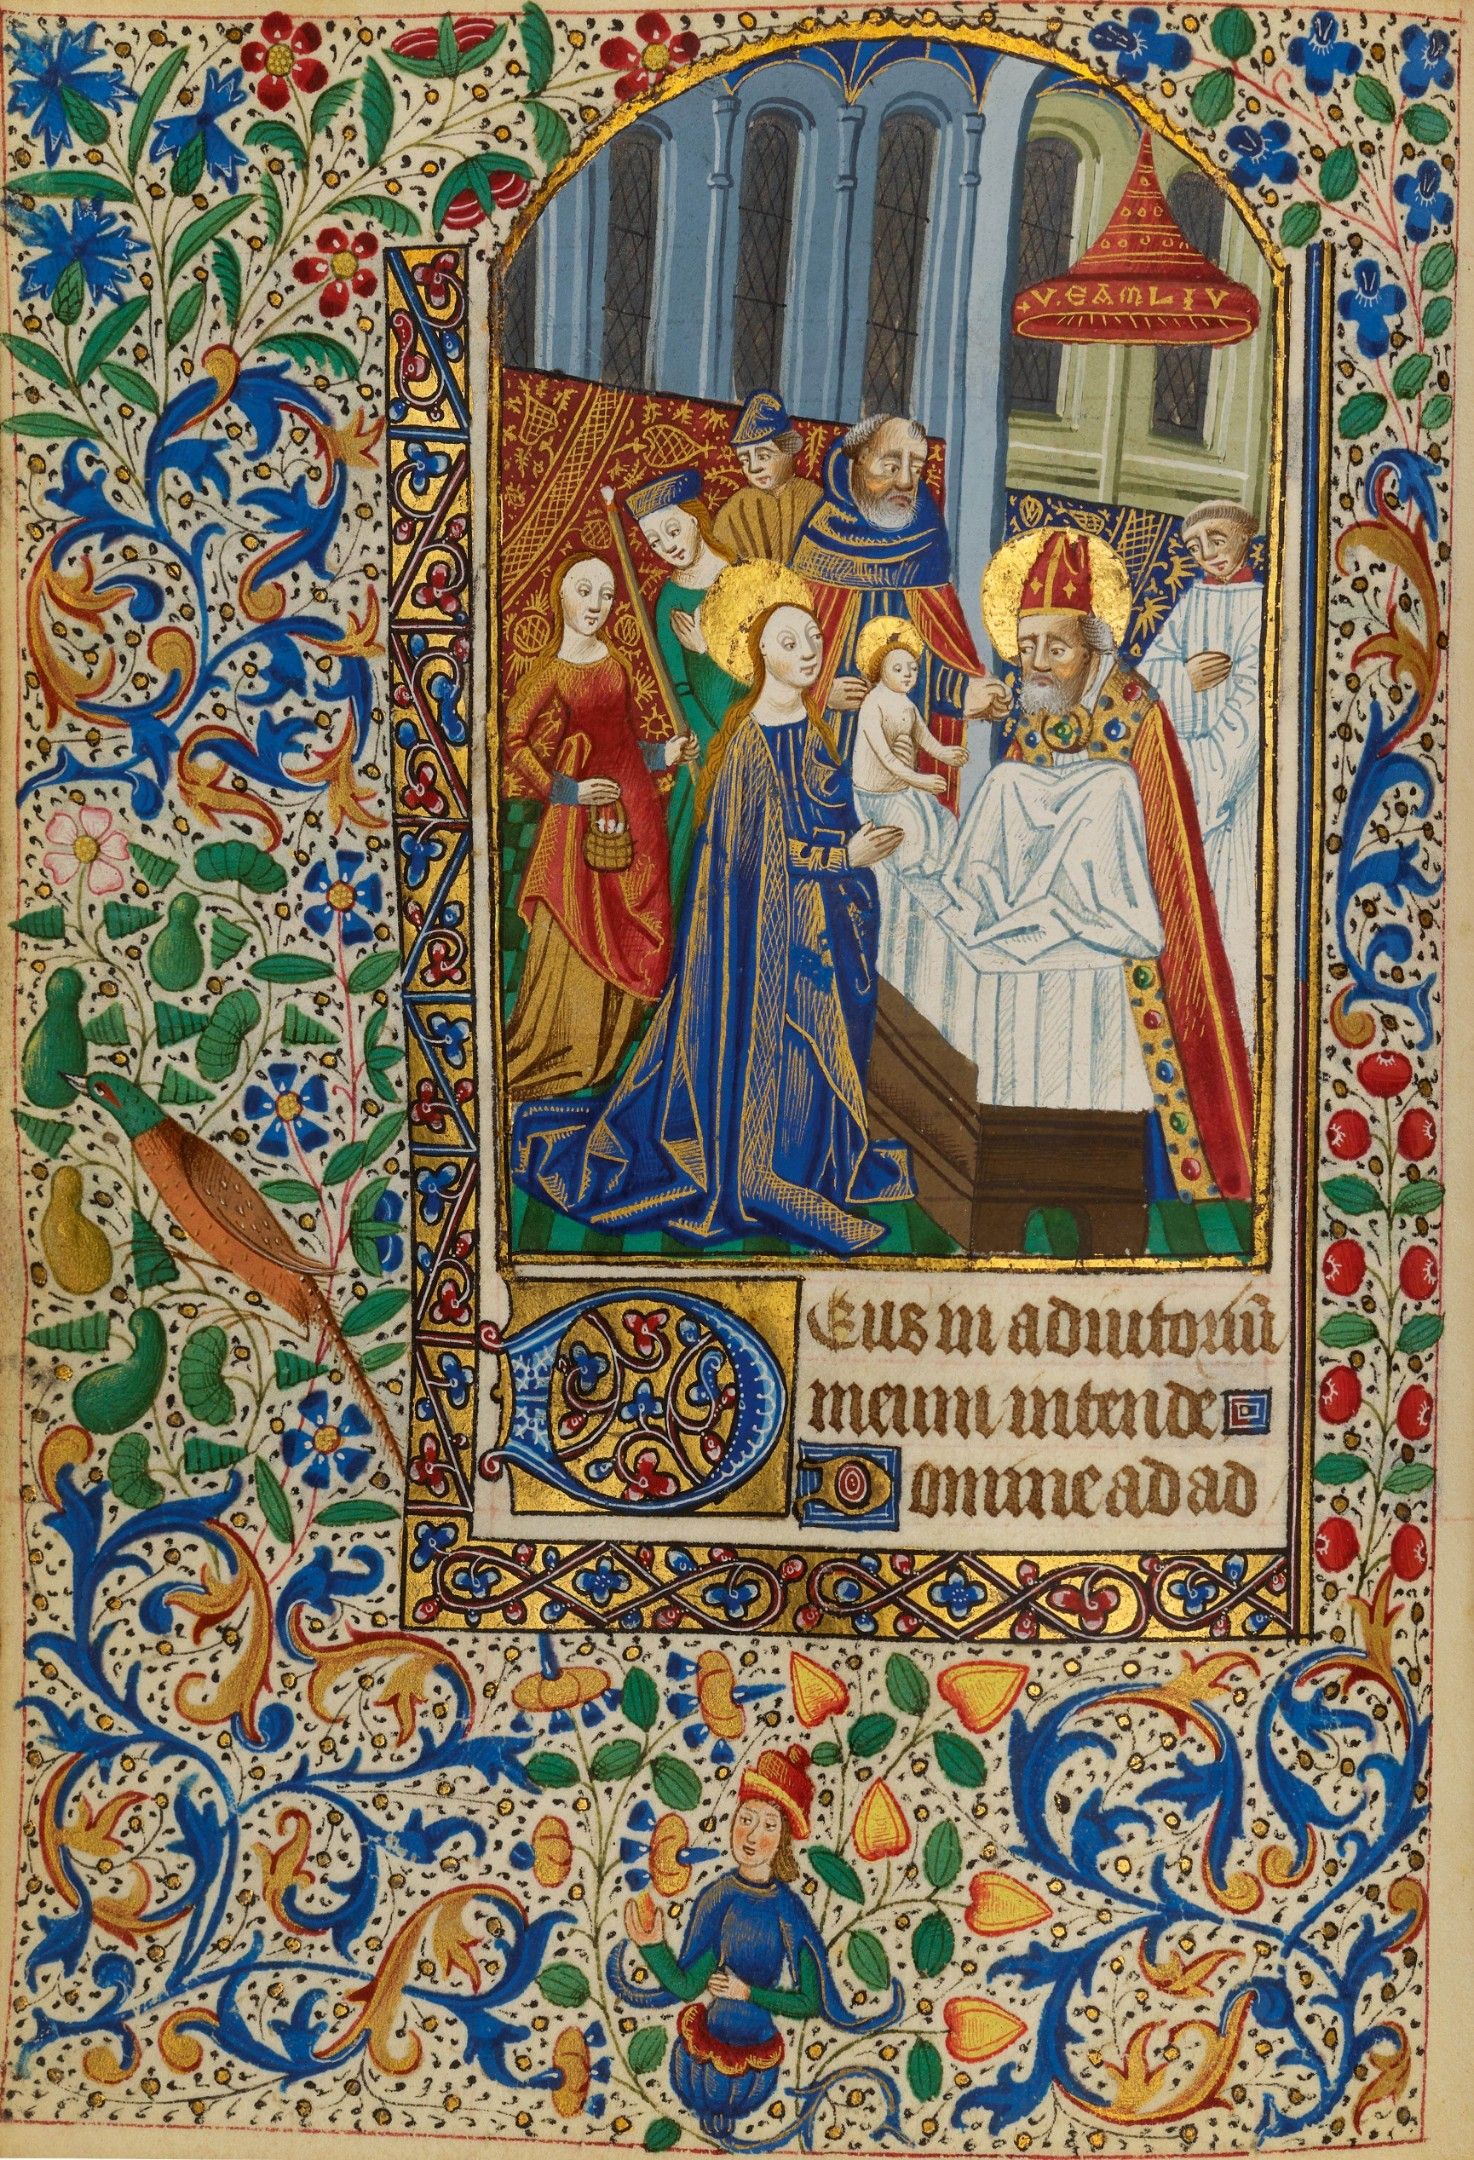 V.EAMLIV
Deus in adiutoriū
meum intende
Domine ad ad